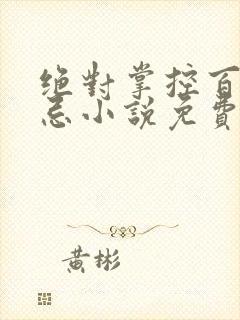 絕對掌控百
忌小說免費
黃彬